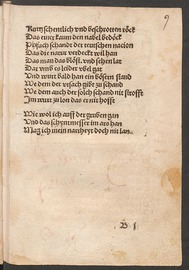 9
Kurtz schentlich vnd beschroten röck
Das einer kum den nabel bedöck
Pfuch schandt der tütschen nacion
Das die natur verdeckt will han
Das man das blöſt vnd sehen lat
Dar vmb es leider übel gat
Vnd würt bald han ein bösern stand
We dem der vrsach gibt zu schand
We dem auch der solch schand nit strofft
Im würt zu lon das er nit hofft
Wie wol ich auff der gruben gan
Vnd das schyntmesser im ars han
Mag ich mein narrheyt doch nit lan
B i